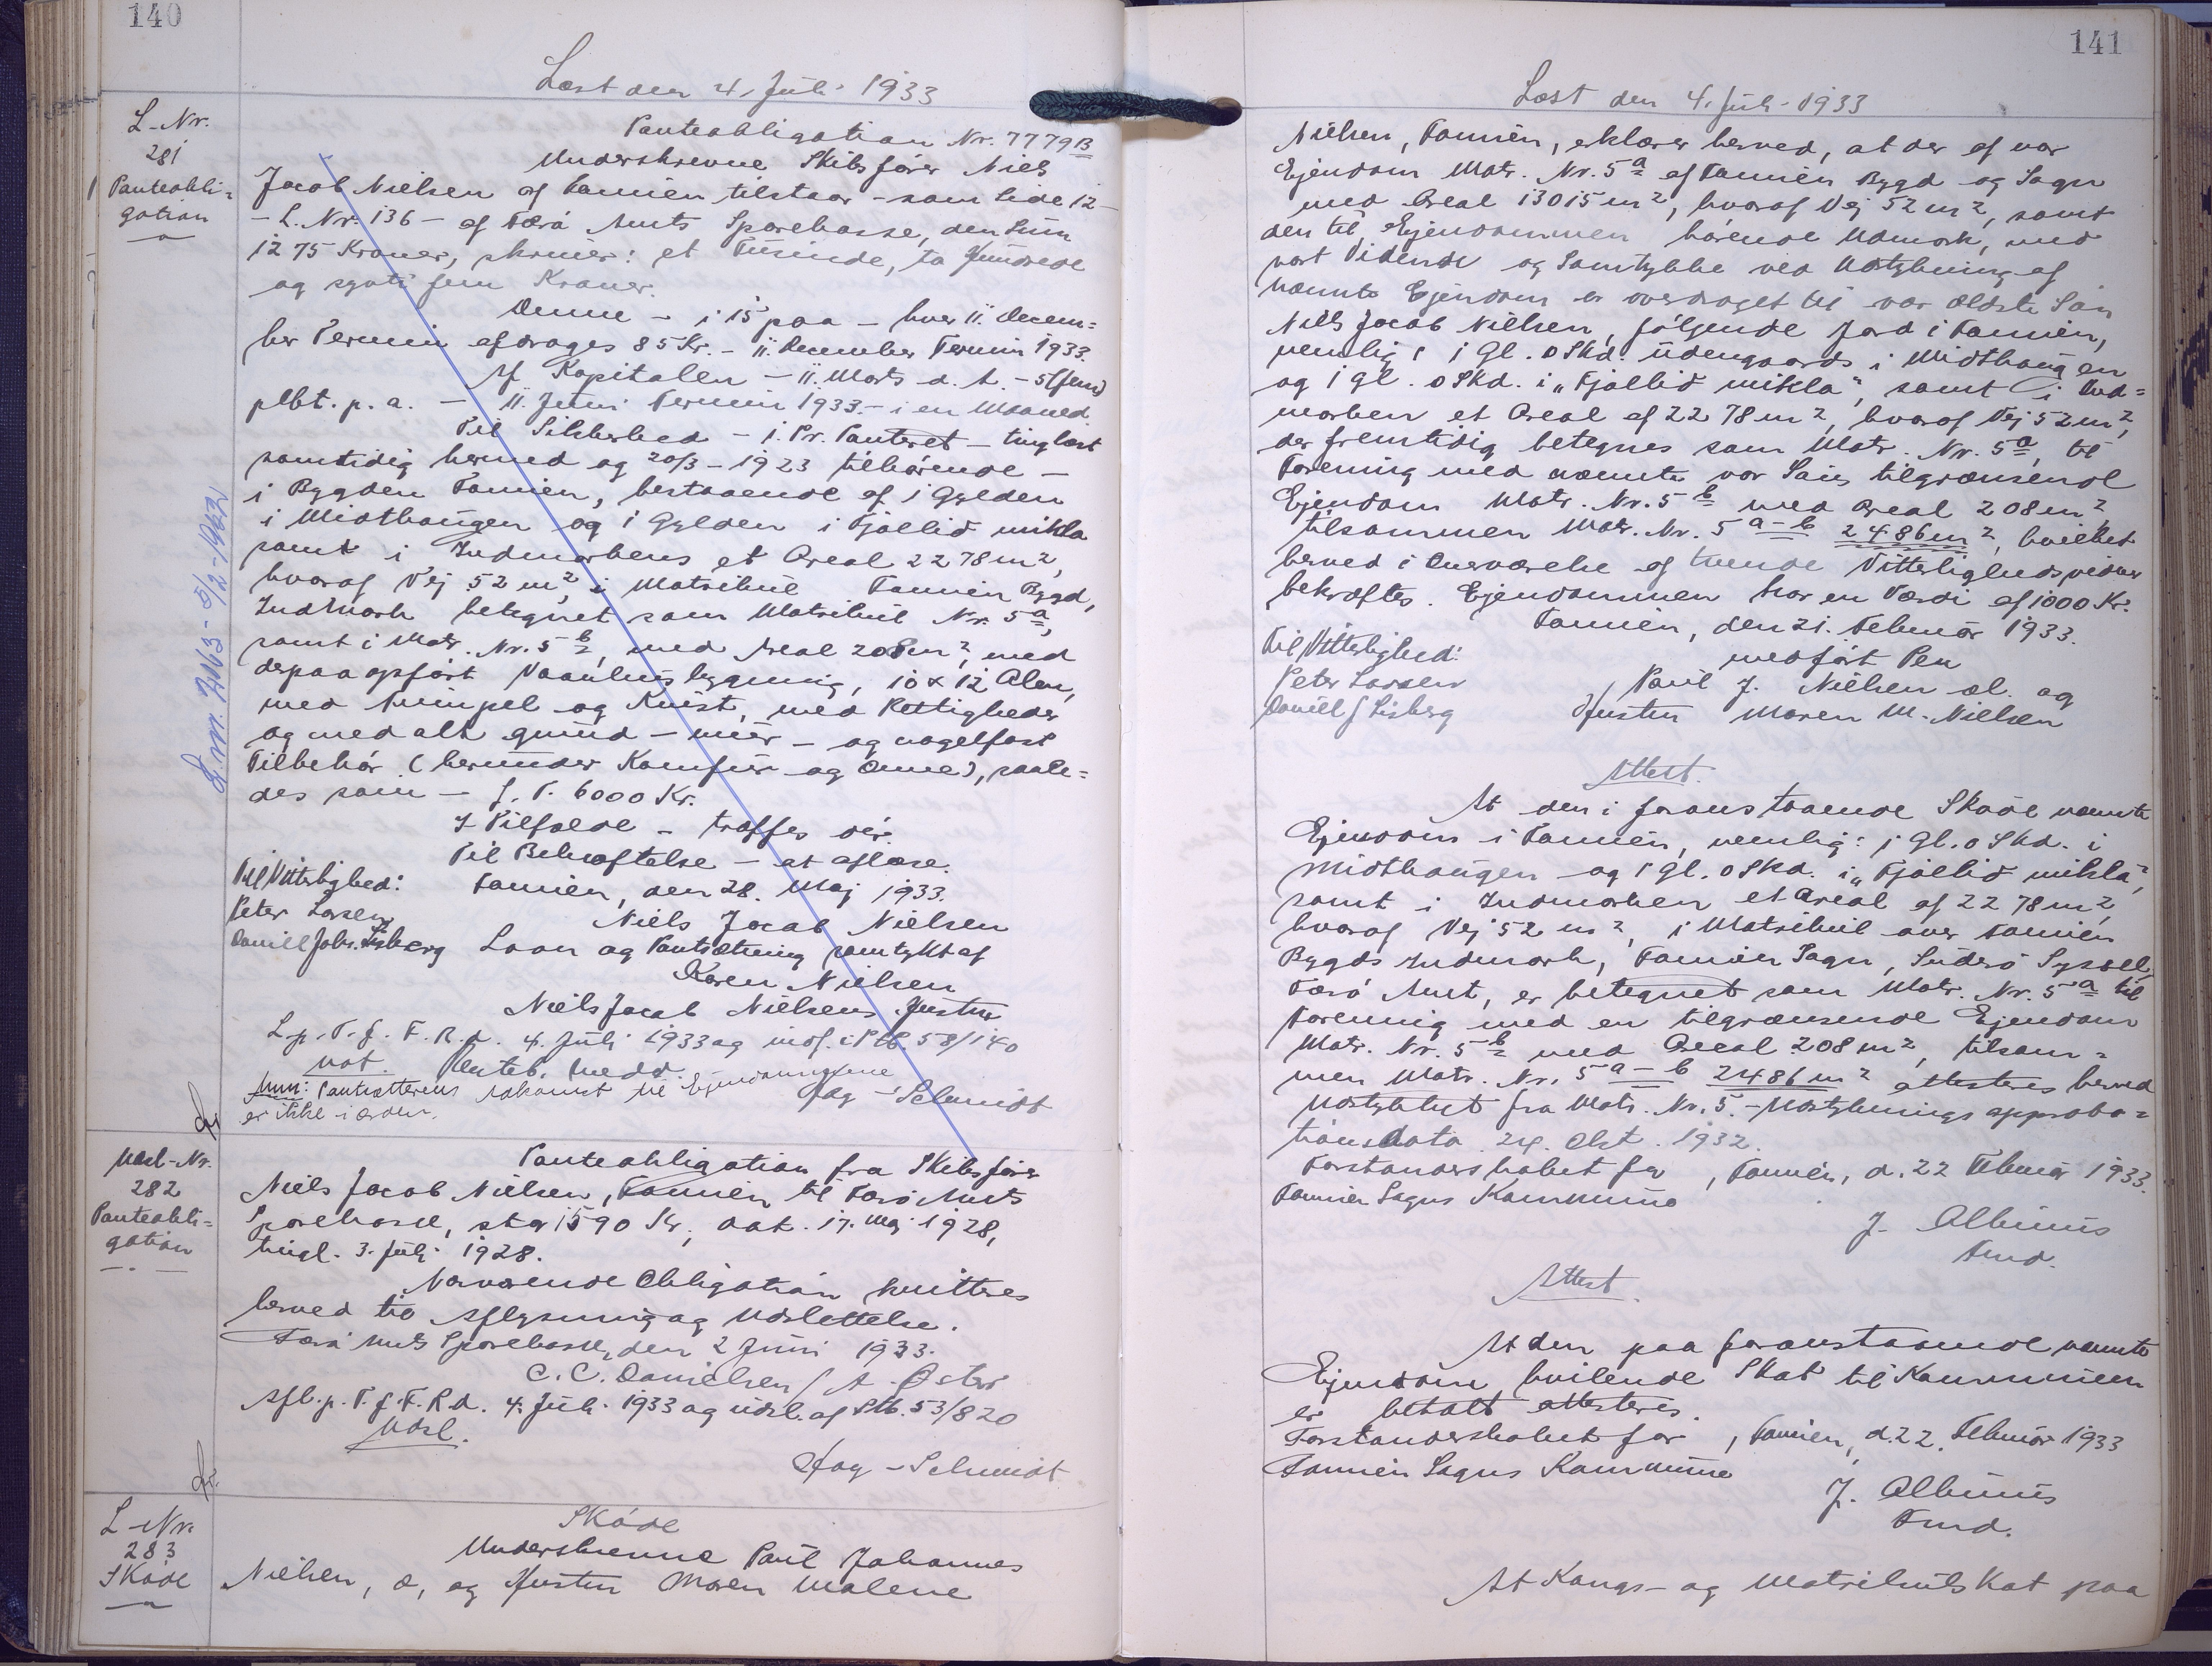 140
Læst den 4. Juli 1933
L-Nr.
281
Panteobli-
gation
Panteobligation Nr. 7779B
Underskrevne Skibsfører Niels
Jacob Nielsen af Famien tilstaar - som Side 12 -
- L. Nr. 136 - af Færø Amts Sparekasse, den Sum
1275 Kroner, skriver: et Tusinde, to Hundrede
og syvti fem Kroner.
Denne - i 15 paa - hver 11. Decem=
ber Termin afdrages 85 Kr. - 11. December Termin 1933.
Af Kapitalen - 11. Marts d. A. - 5 (fem)
plbt. p. a. - 11. Juni Termin 1933. - i en Maaned.
Til Sikkerhed - 1. Pr. Panteret - tinglæst
samtidig hermed og 20/3 - 1923 tilhørende -
i Bygden Famien, bestaaende af 1 Gylden
i Midthaugen og 1 Gylden i Fjøllid mikla
samt i Indmarkens et Areal 2278 m²,
hvoraf Vej 52 m², i Matrikul Famien Bygd,
Indmark betegnet som Matrikul Nr. 5a,
samt i Matr. Nr. 5b, med Areal 208 m², med
derpaa opført Vaanhusbygning, 10 x 12 Alen,
med Kumpel og Kvist, med Rettigheder
og med alt grund - mur - og nagelfast
Tilbehør (herunder Komfur og Ovne), saale=
des som - f. T. 6000 Kr.
I Tilfælde - træffes dér.
Til Bekræftelse - at aflæse.
Til Vitterlighed: Famien, den 28. Maj 1933.
Peter Larsen Niels Jacob Nielsen
Daniell Johs. Lisberg Laan og Pantsætning samtykt af
Karen Nielsen
Niels Jacob Nielsens Hustru
L. p. T. f. F. R. d. 4. Juli 1933 og indf. i Ptb. 58/140
not. Panteb. medd.
Anm: Pantsætterens Adkomst til Ejendommene
er ikke i orden. Hag - Schmidt
L.nr. 2163 - 5/2-1962
Udsl-Nr.
282
Panteobli=
gation
Panteobligation fra Skibsfører
Niels Jacob Nielsen, Famien til Færø Amts
Sparekasse, stor 1590 Kr, dat. 17. Maj 1928,
tingl. 3. Juli 1928.
Nærværende Obligation kvitteres
herved til Aflysning og Udslettelse.
Færø Amts Sparekasse, den 2 Juni 1933.
C. C. Danielsen / A. Øster
Afl. p. T. f. F. R. d. 4. Juli 1933 og udsl. af Ptb. 53/820
Udsl.
Hag - Schmidt
L-Nr.
283
Skøde
Skøde
Underskrevne Paul Johannes
Nielsen, æ, og Hustru Maren Malene
141
Læst den 4. Juli 1933
Nielsen, Famien, erklærer herved, at der af vor
Ejendom Matr. Nr. 5a af Famien Bygd og Sogn
med Areal 13015 m², hvoraf Vej 52 m², samt
den til Ejendommen hørende Udmark, med
vort Vidende og Samtykke ved Udstykning af
nævnte Ejendom er overdraget til vor ældste Søn
Niels Jacob Nielsen, følgende Jord i Famien,
nemlig: 1 Gl. 0 Skd. udengaards i Midthaugen
og 1 gl. 0 Skd. i "Fjøllid mikla", samt i Ind=
marken et Areal af 2278 m², hvoraf Vej 52 m²,
der fremtidig betegnes som Matr. Nr. 5a, til
Forening med nævnte vor Søns tilgrænsende
Ejendom Matr. Nr. 5b med Areal 208 m²
tilsammen Matr. Nr. 5a-b 2486 m², hvilket
herved i Overværelse af tvende Vitterlighedsvidner
bekræftes. Ejendommen har en Værdi af 1000 Kr.
Famien, den 21. Februar 1933.
Til Vitterlighed: medført Pen
Peter Larsen Paul J. Nielsen æl. og
Daniell J Lisberg Hustru Maren M. Nielsen
Attest.
At den i foranstaaende Skøde nævnte
Ejendom i Famien, nemlig: 1 Gl. 0 Skd. i
Midthaugen og 1 gl. 0 Skd. i "Fjøllid mikla",
samt i Indmarken et Areal af 2278 m²,
hvoraf Vej 52 m², i Matrikul over Famien
Bygds Indmark, Famien Sogn, Suderø Syssel,
Færø Amt, er betegnet som Matr. Nr. 5a til
Forening med en tilgrænsende Ejendom
Matr. Nr. 5b med Areal 208 m², tilsam=
men Matr. Nr. 5a-b 2486 m² attesteres herved
Udstykket fra Matr. Nr. 5. - Udstyknings approba=
tionsdato 24. Okt. 1932.
Forstanderskabet for , Famien, d. 22 Februar 1933.
Famien Sogns Kommune
J. Albinus
Fmd.
Attest.
At den paa foranstaaende nævnte
Ejendom hvilende Skat til Kommunen
er betalt attesteres.
Forstanderskabet for , Famien, d. 22. Februar 1933
Famien Sogns Kommune
J. Albinus
Fmd.
At Konge- og Matrikulskat paa